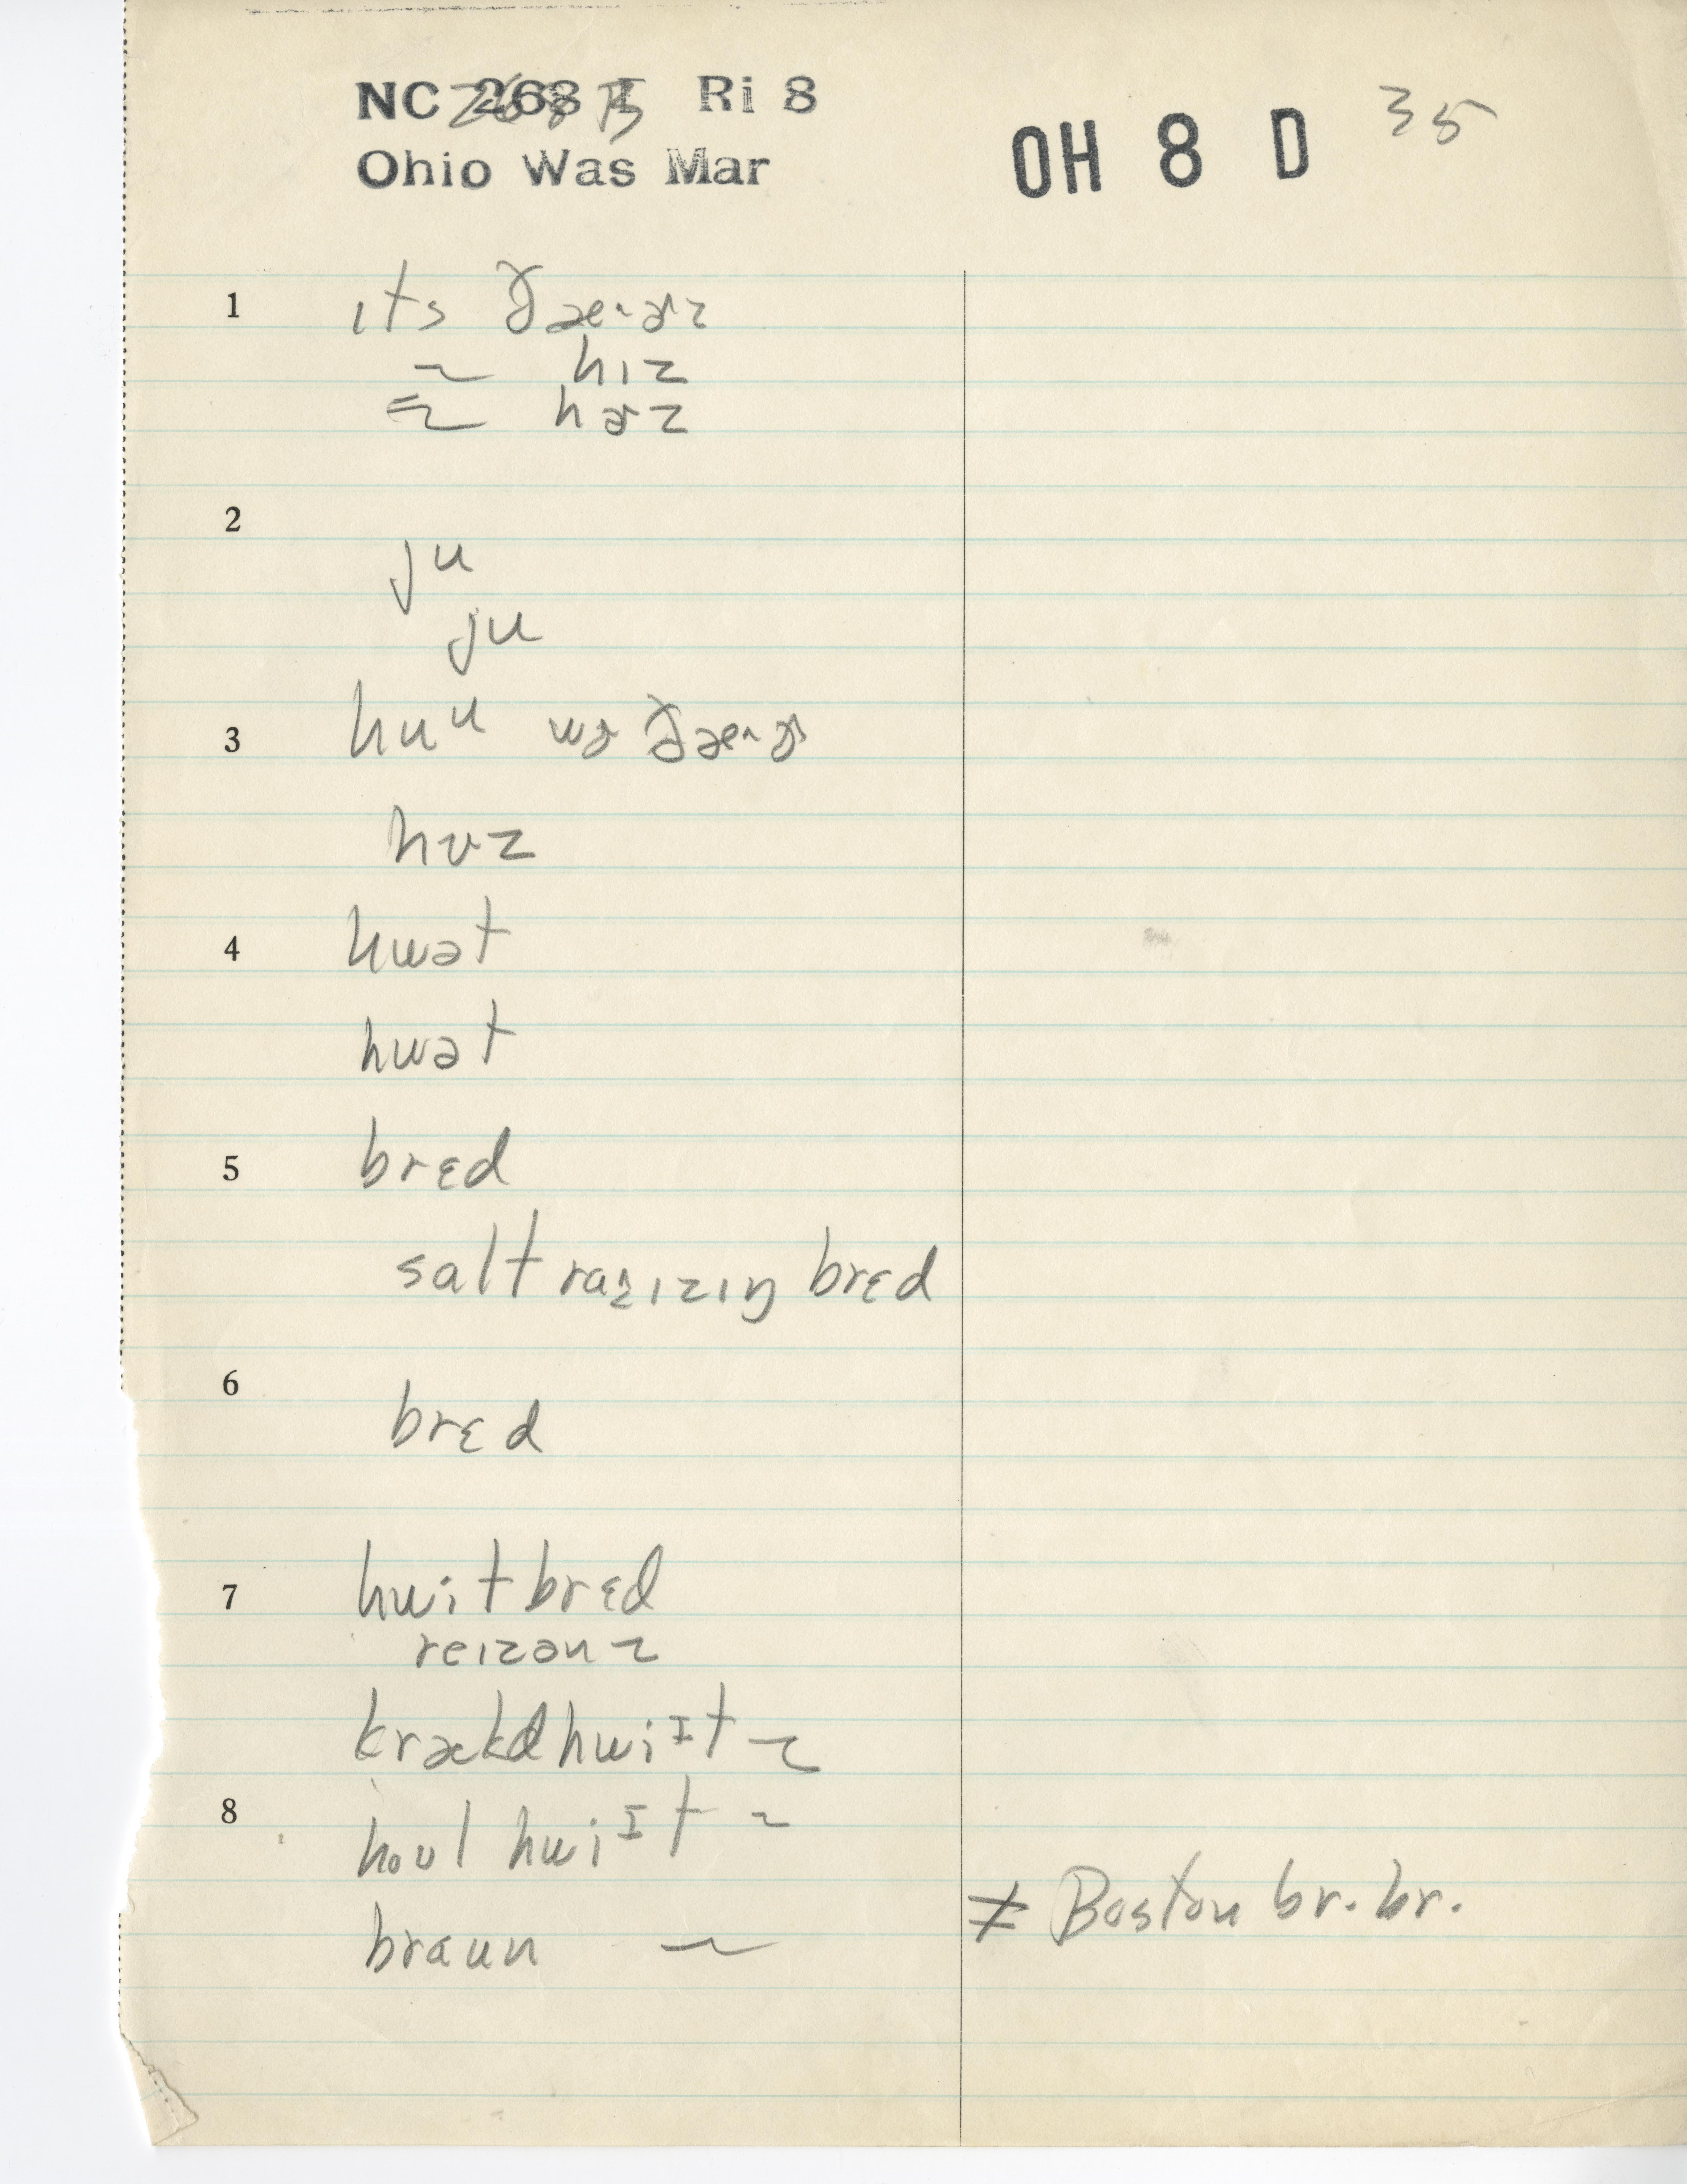 NC 268 Ri 8
Ohio Was Mar
OH 8 D 35
1 ɪts ðæ·ɚz
~ hɪz
= ~ hɚz
2
ju
ju
3 huᵘ wɚ ðæ·ɚ
hʊz
4 hwət
hwət
5 brɛd
salt bred
6
brɛd
7 hwit brɛd
reɪzən ~
krækd hwiᴵt ~
8 hoʊl hwiᴵt ~
braun ~ ≠ Boston br. br.